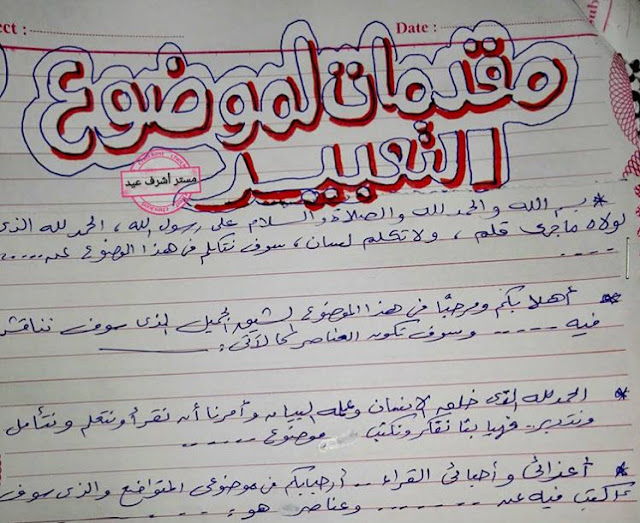 ect :
Date :
مقدمات لموضوع
التعبير
مستر أشرف عيد
* بسم الله والحمد لله والصلاة والسلام على رسول الله ، الحمد لله الذى
لولاه ماجرى قلم ، ولا تكلم لسان ، سوف نتكلم فى هذا الموضوع عن .....
* أهلا بكم ومرحبًا فى هذا الموضوع الشيق الجميل الذى سوف نناقش
فيه ----- وسوف تكون العناصر كالآتى :
* الحمد لله الذى خلق الإنسان وعلمه البيان وأمرنا أن نقرأ ونتعلم ونتأمل
ونتدبر .. فهيا بنا نفكر ونكتب موضوع -------
* أعزائى وأحبائى القراء .. أرحب بكم فى موضوعى المتواضع والذى سوف
أكتب فيه عن ------- وعناصره هى :